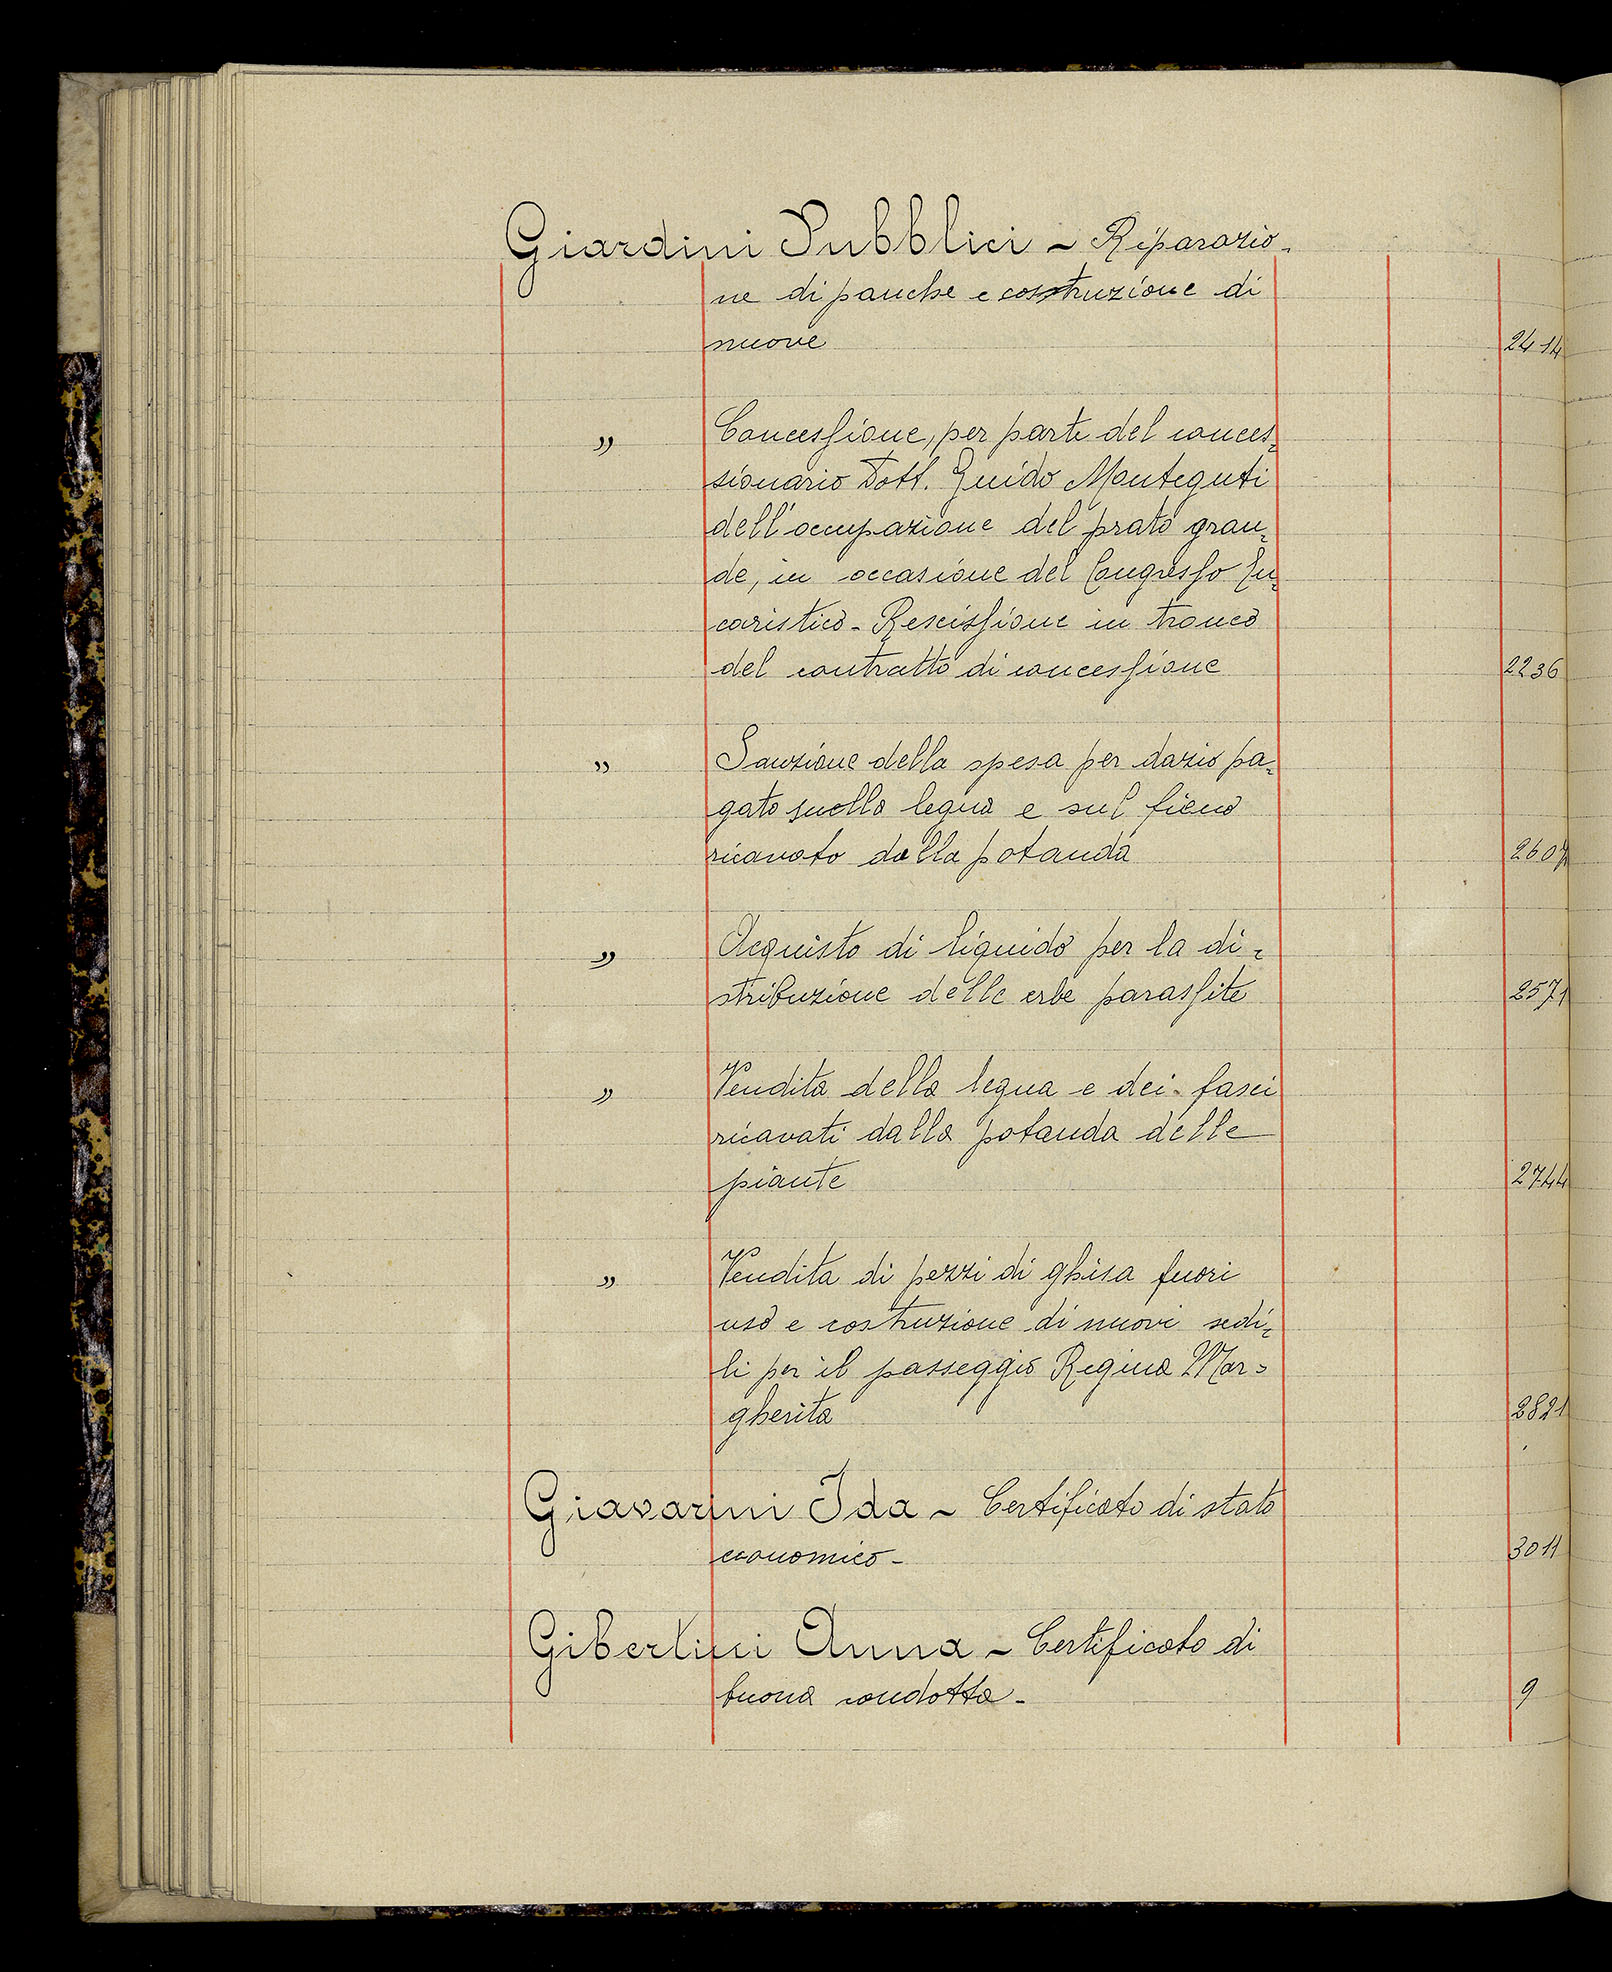 Giardini Pubblici - Riparazio-
ne di panche e costruzione di
nuove 2414
" Concessione, per parte del conces-
sionario Dott. Guido Monteguti
dell'occupazione del prato gran-
de, in occasione del Congresso Eu-
caristico - Rescissione in tronco
del contratto di concessione 2236
" Sanzione della spesa per dazio pa-
gato sulla legna e sul fieno
ricavato dalla potanda 2607
" Acquisto di liquido per la di-
stribuzione delle erbe parassite 2571
" Vendita della legna e dei fasci
ricavati dalla potanda delle
piante 2744
" Vendita di pezzi di ghisa fuori
uso e costruzione di nuovi sedi-
li per il passeggio Regina Mar-
gherita 2821
Giavarini Ida - Certificato di stato
economico - 3011
Gibertini Anna - Certificato di
buona condotta - 9